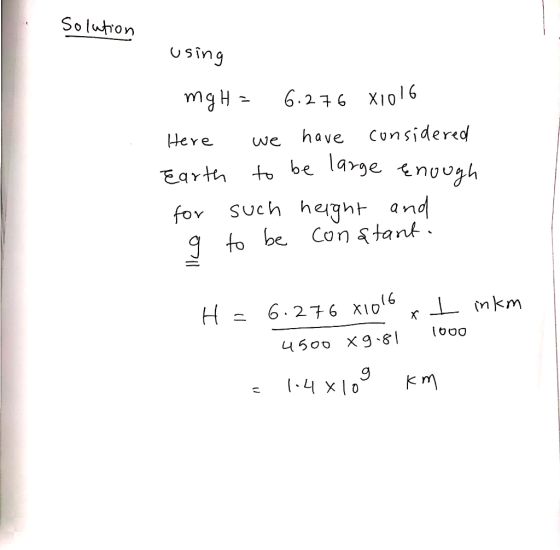 Solution
using
mgH = 6.276 X10^16
Here we have considered
Earth to be large enough
for such height and
g to be constant.
H = 6.276 X10^16 / 4500 X9.81 x 1/1000 in km
= 1.4 X10^9 km